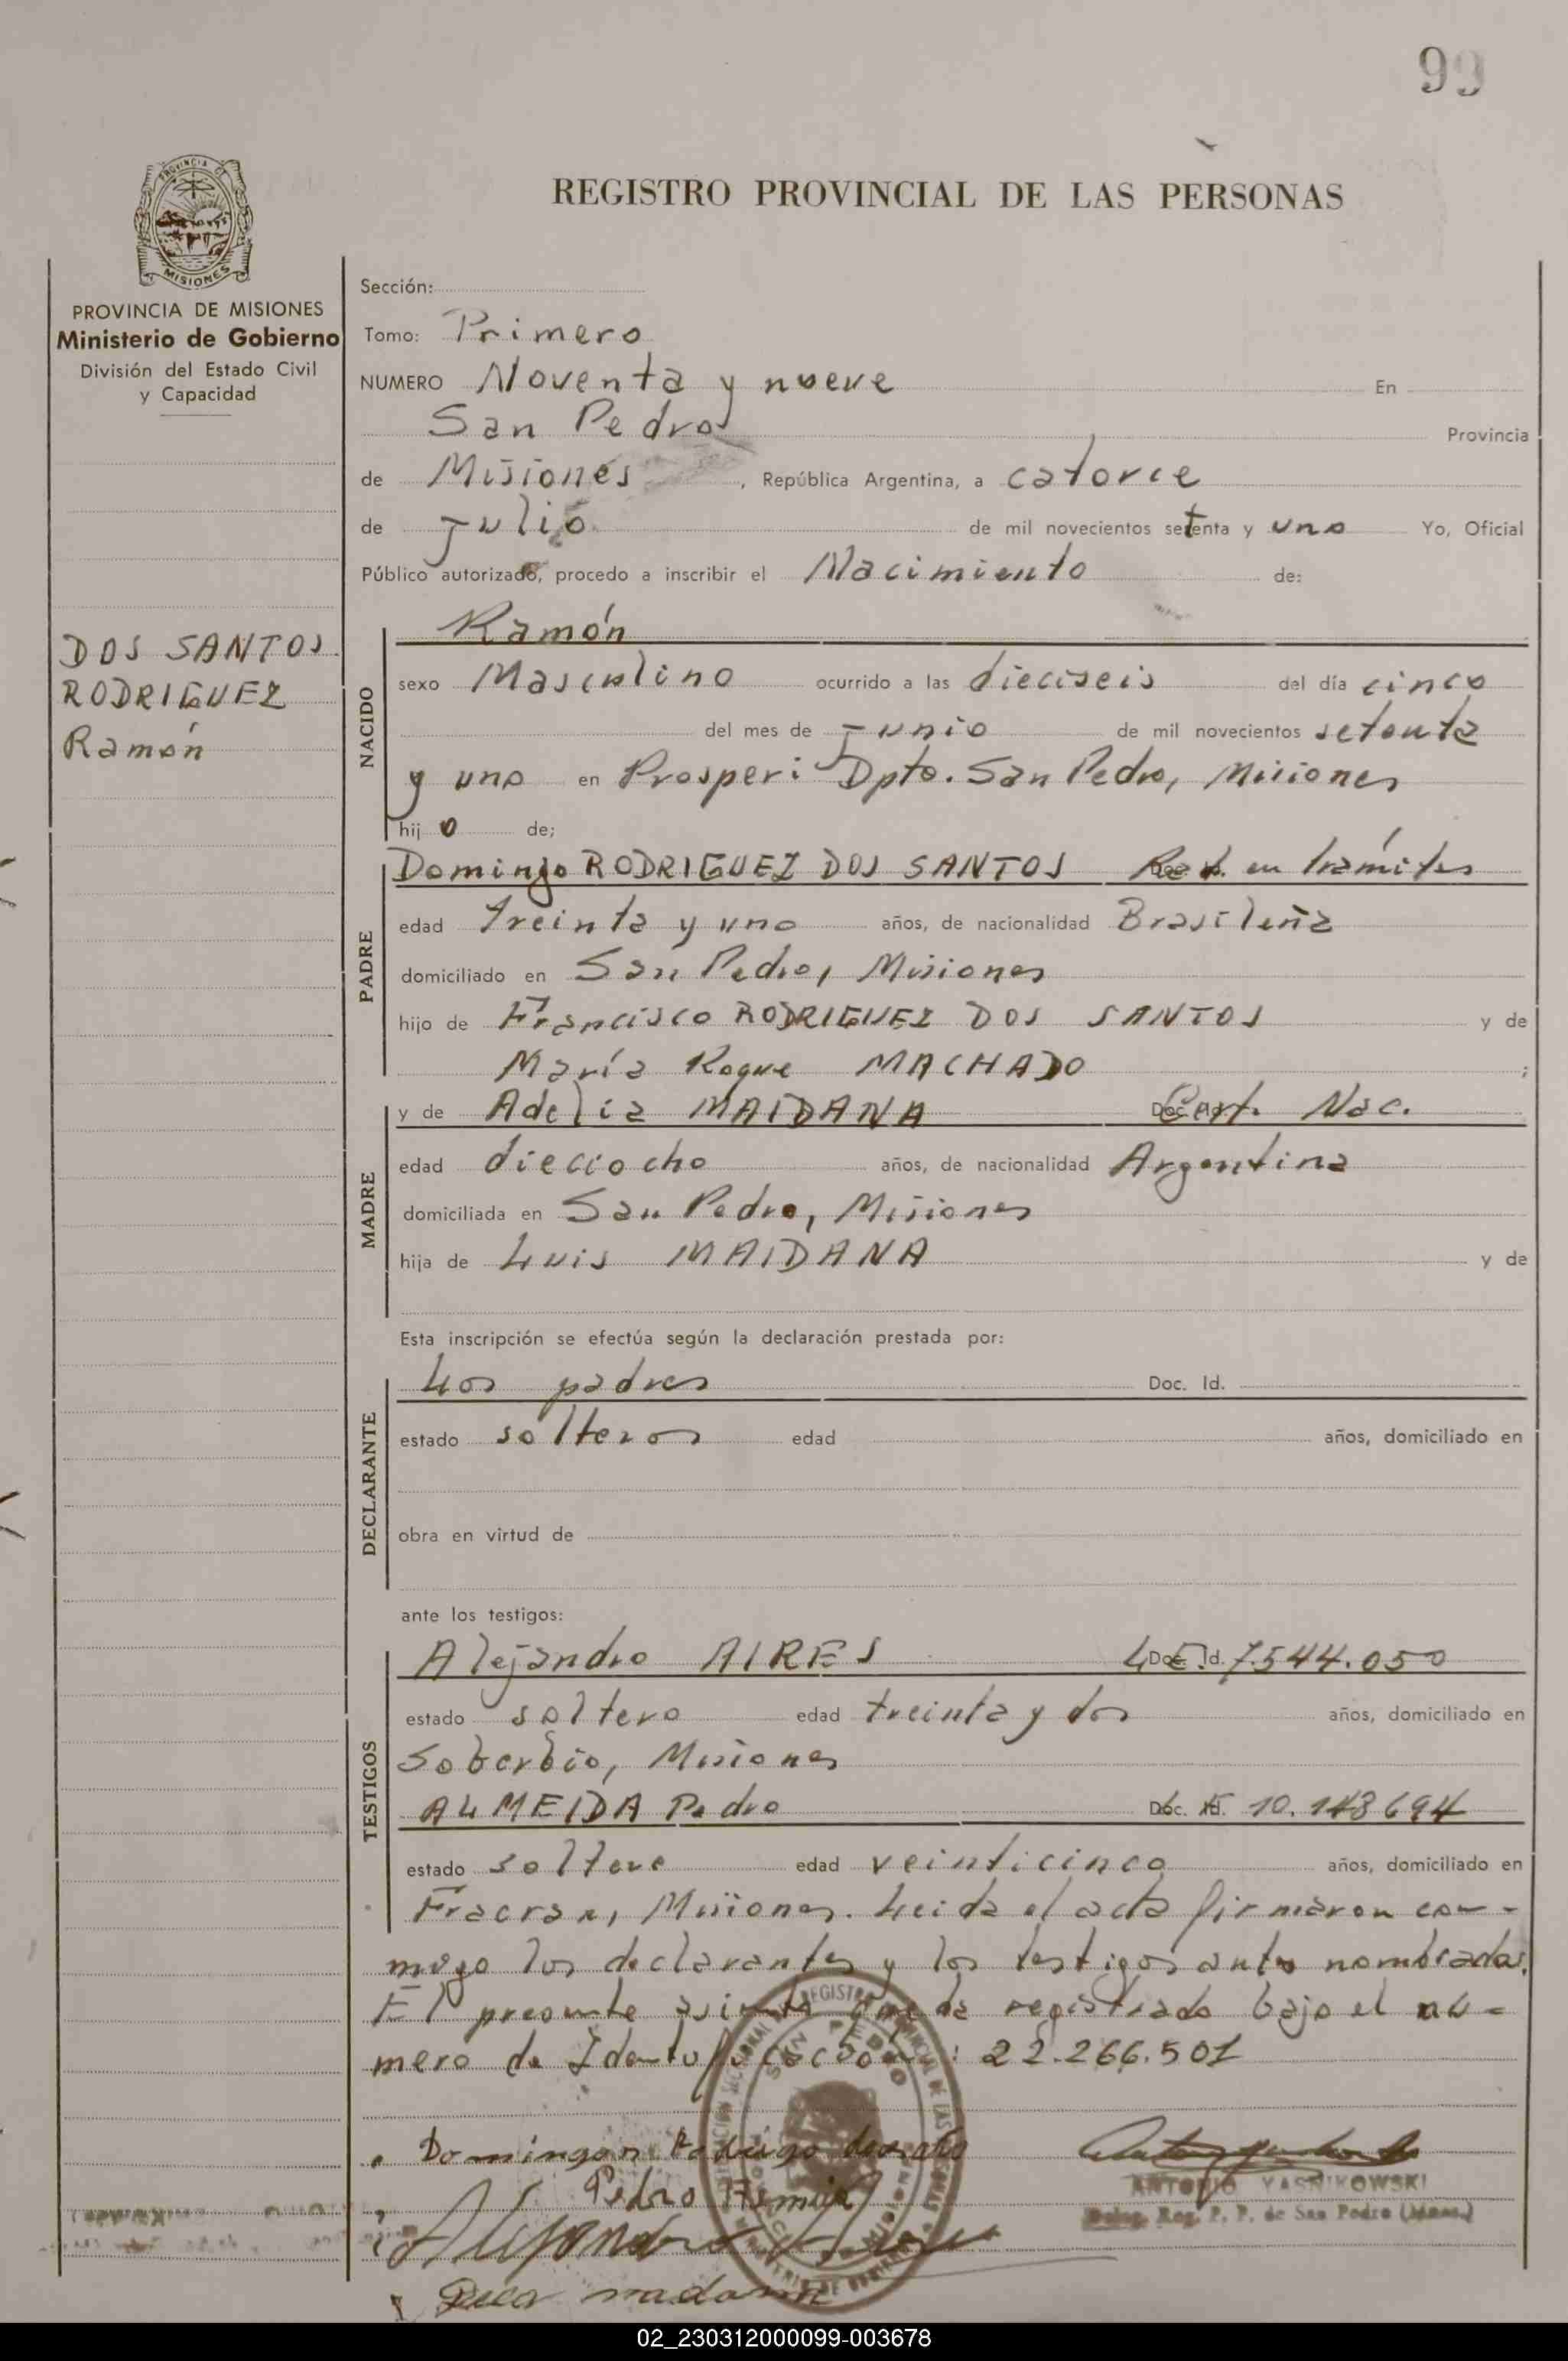 99
REGISTRO PROVINCIAL DE LAS PERSONAS
PROVINCIA DE MISIONES
Ministerio de Gobierno
División del Estado Civil
y Capacidad
DOS SANTOS
RODRIGUEZ
Ramón
Sección:
Tomo: Primero
NUMERO Noventa y nueve En
San Pedro Provincia
de Misiones, República Argentina, a catorce
de Julio de mil novecientos setenta y uno Yo, Oficial
Público autorizado, procedo a inscribir el Nacimiento de:
NACIDO
Ramón
sexo Masculino ocurrido a las dieciseis del día cinco
del mes de Junio de mil novecientos setenta
y uno en Prosperi Dpto. San Pedro, Misiones
hijo de;
PADRE
Domingo RODRIGUEZ DOS SANTOS en trámites
edad treinta y uno años, de nacionalidad Brasileña
domiciliado en San Pedro, Misiones
hijo de Francisco RODRIGUEZ DOS SANTOS y de
María Roque MACHADO ;
MADRE
y de Adelia MAIDANA Cert. Nac.
edad dieciocho años, de nacionalidad Argentina
domiciliada en San Pedro, Misiones
hija de Luis MAIDANA y de
Esta inscripción se efectúa según la declaración prestada por:
DECLARANTE
Los padres Doc. Id.
estado solteros edad años, domiciliado en
obra en virtud de
ante los testigos:
TESTIGOS
Alejandro AIRES L.E. 7.544.050
estado soltero edad treinta y dos años, domiciliado en
Soberbio, Misiones
ALMEIDA Pedro Doc. Id. 10.143694
estado soltero edad veinticinco años, domiciliado en
Fracran, Misiones. Leida el acta firmaron con-
migo los declarantes y los testigos antes nombrados.
El presente asiento queda registrado bajo el nú-
mero de Identificación: 22.266.501
SAN PEDRO
ANTONIO YASNIKOWSKI
Deleg. Reg. P. P. de San Pedro (Mnes.)
02_230312000099-003678